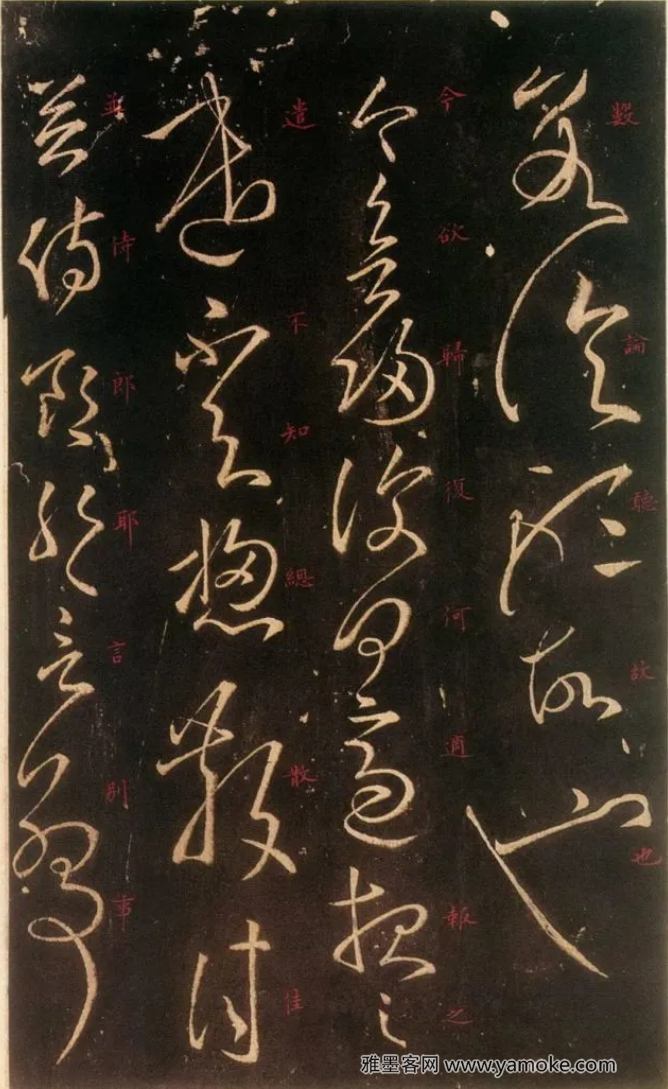 數論聽故也
今欲歸復何適報之
遣不知總散佳
並侍郎耶言別事
雅墨客网 www.yamoke.com